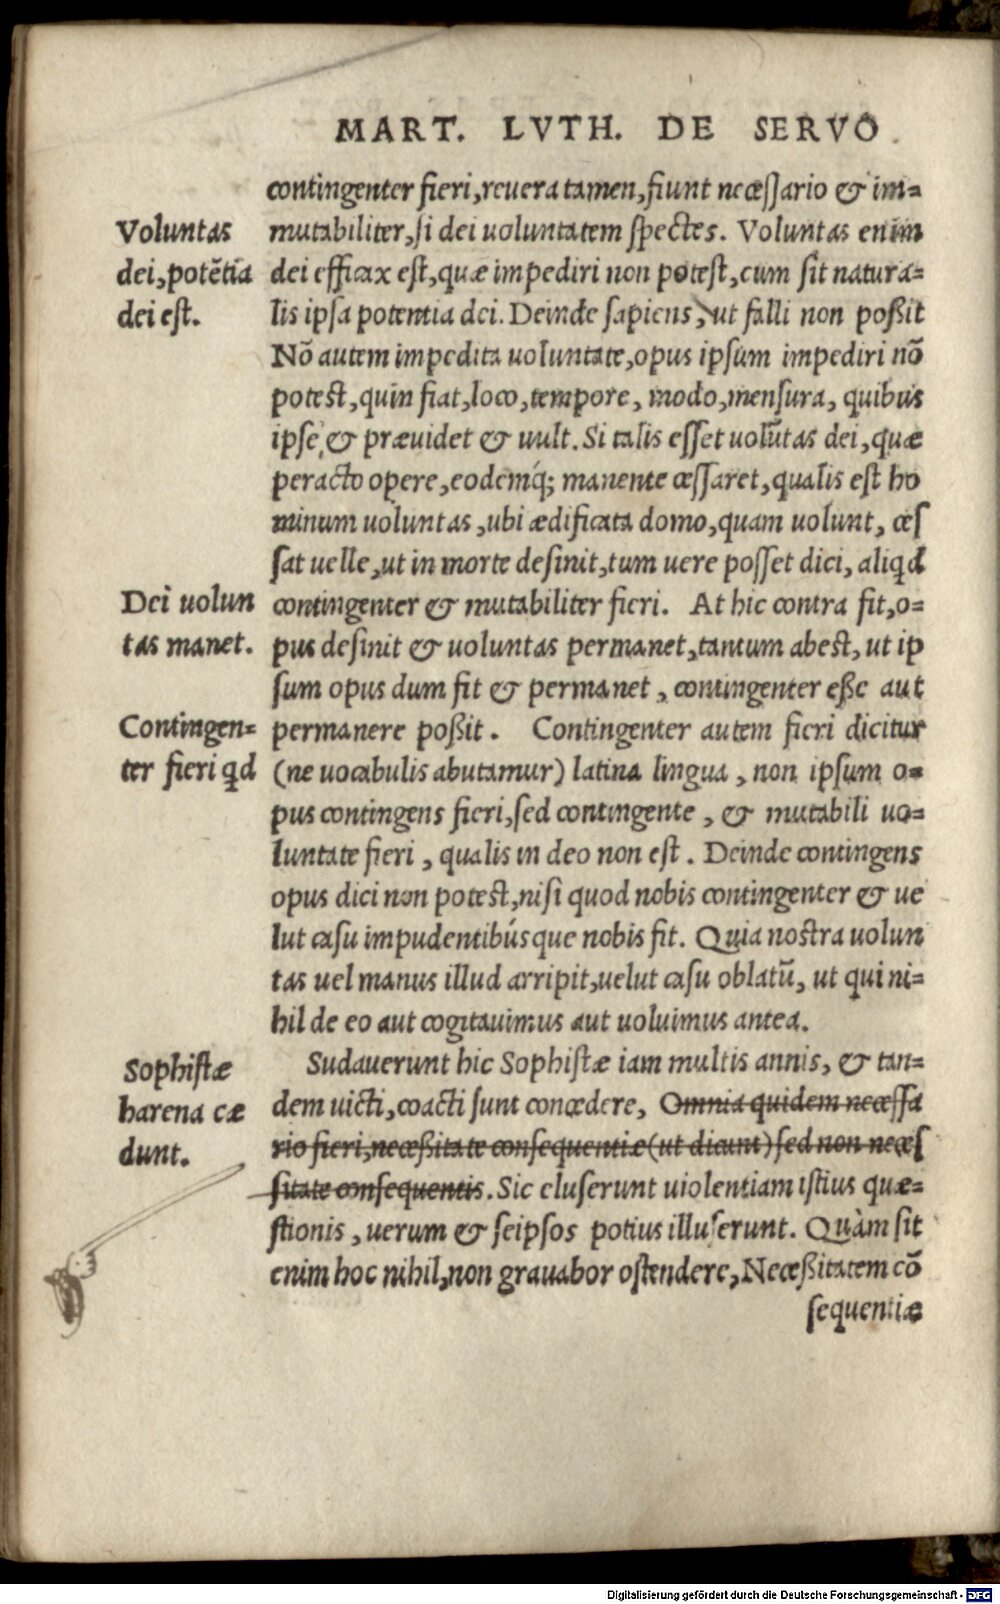 MART. LVTH. DE SERVO
contingenter fieri, reuera tamen, fiunt necessario & im=
Voluntas
mutabiliter, si dei uoluntatem spectes. Voluntas enim
dei, potẽtia
dei efficax est, quæ impediri non potest, cum sit natura=
dei est.
lis ipsa potentia dei. Deinde sapiens, ut falli non poßit
Nõ autem impedita uoluntate, opus ipsum impediri nõ
potest, quin fiat, loco, tempore, modo, mensura, quibus
ipse, & præuidet & uult. Si talis esset uolũtas dei, quæ
peracto opere, eodemq́; manente cessaret, qualis est ho
minum uoluntas, ubi ædificata domo, quam uolunt, ces
sat uelle, ut in morte desinit, tum uere posset dici, aliqd
Dei uolun
contingenter & mutabiliter fieri. At hic contra fit, o=
tas manet.
pus desinit & uoluntas permanet, tantum abest, ut ip
sum opus dum fit & permanet, contingenter eße aut
Contingen=
permanere poßit. Contingenter autem fieri dicitur
ter fieri qd
(ne uocabulis abutamur) latina lingua, non ipsum o=
pus contingens fieri, sed contingente, & mutabili uo=
luntate fieri, qualis in deo non est. Deinde contingens
opus dici non potest, nisi quod nobis contingenter & ue
lut casu impudentibúsque nobis fit. Quia nostra uolun
tas uel manus illud arripit, uelut casu oblatũ, ut qui ni=
hil de eo aut cogitauimus aut uoluimus antea.
Sophistæ
Sudauerunt hic Sophistæ iam multis annis, & tan=
harena cæ
dem uicti, coacti sunt concedere, Omnia quidem necessa
dunt.
rio fieri, neceßitate consequentiæ (ut dicunt) sed non neces
sitate consequentis. Sic eluserunt uiolentiam istius quæ=
stionis, uerum & seipsos potius illuserunt. Quàm sit
enim hoc nihil, non grauabor ostendere, Neceßitatem cõ
sequentiæ
Digitalisierung gefördert durch die Deutsche Forschungsgemeinschaft - DFG